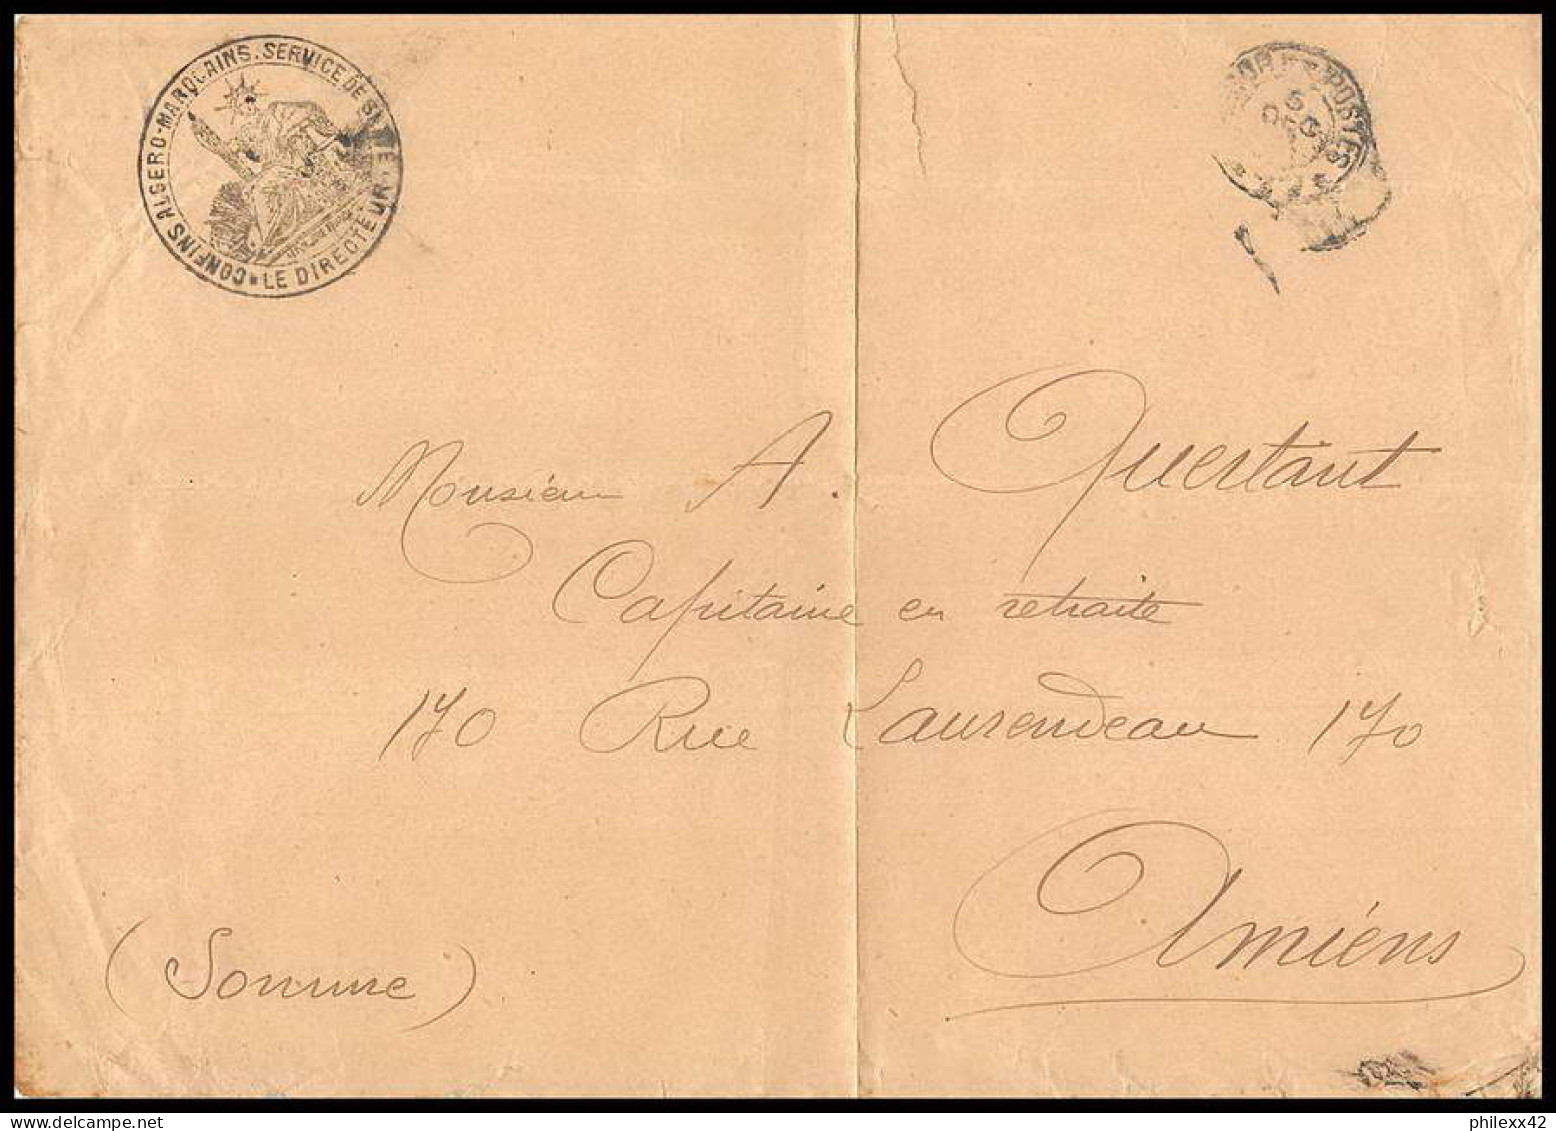 CONFINS ALGERO-MAROCAINS. SERVICE DE
LE DIRECTEUR
POSTES
Monsieur A. Questant
Capitaine en retraite
170 Rue Laurendeau 170
Amiéns
(Somme)
philexx42